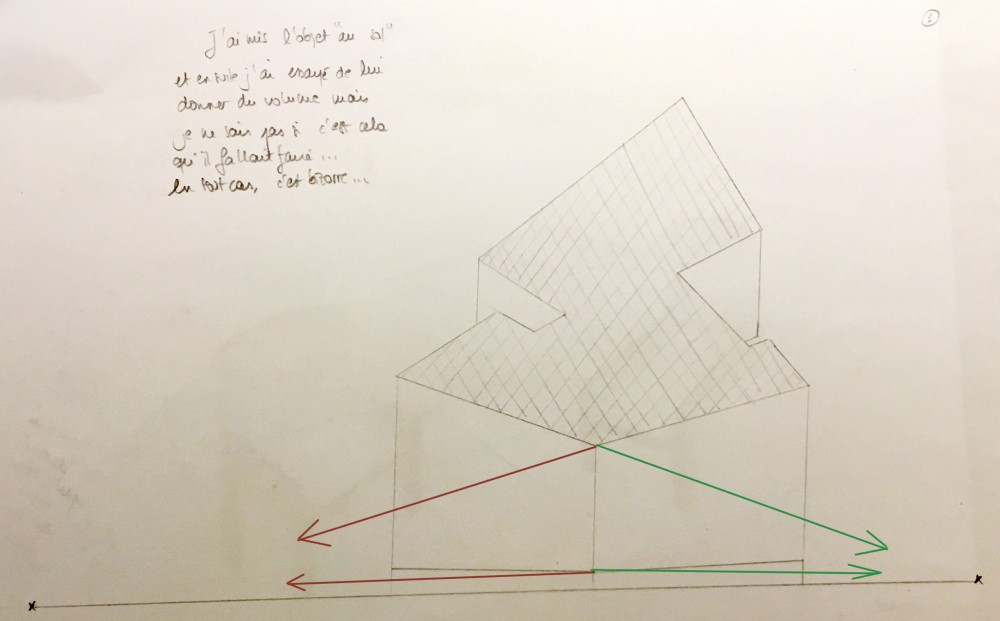 J'ai mis l'objet "au sol"
et ensuite j'ai essayé de lui
donner du volume mais
je ne sais pas si c'est cela
qu'il fallait faire...
En tout cas, c'est bizarre...